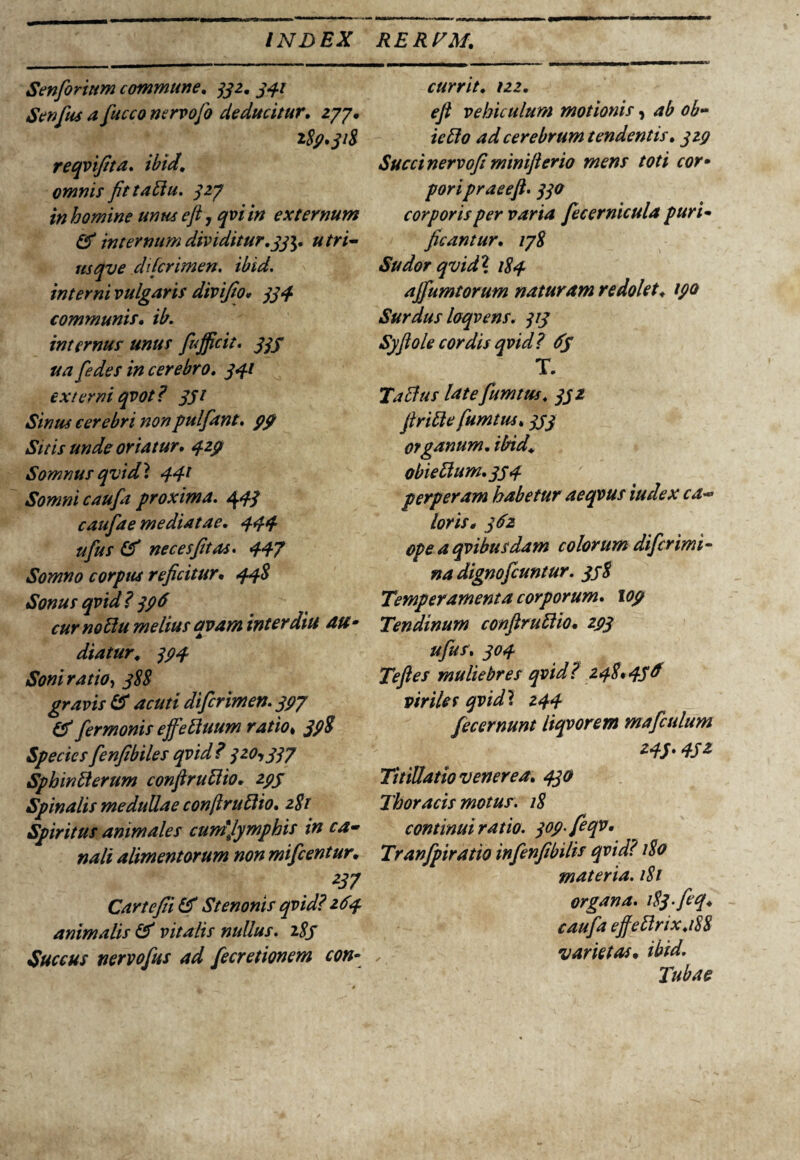 INDEX RERVM.
Senſorium commune. 332. 341
Senſus a ſucco nervoſo deducitur. 277.
289. 318
reqviſita. ibid.
omnis fit tactu. 327
in homine unus eſt, qvi in externum
& internum dividitur. 333. utri-
usqve diſcrimen. ibid.
interni vulgaris diviſio. 334
communis. ib.
internus unus ſufficit. 335
ua ſedes in cerebro. 341
externi qvot? 351
Sinus cerebri non pulſant. 99
Sitis unde oriatur. 429
Somnus qvid? 441
Somni cauſa proxima. 443
cauſae mediatae. 444
uſus & necesſitas. 447
Somno corpus reficitur. 448
Sonus qvid? 396
cur noctu melius qvam interdiu au-
diatur. 394
Soni ratio, 388
gravis & acuti diſcrimen. 397
& ſermonis effectuum ratio. 398
Species ſenſibiles qvid? 320, 337
Sphincterum conſtructio. 295
Spinalis medullae conſtructio. 281
Spiritus animales cum lymphis in ca-
nali alimentorum non miſcentur.
237
Carteſii & Stenonis qvid? 264
animalis & vitalis nullus. 285
Succus nervoſus ad ſecretionem con-
currit. 122.
eſt vehiculum motionis, ab ob-
iecto ad cerebrum tendentis. 329
Succi nervoſi miniſterio mens toti cor-
pori praeeſt. 330
corporis per varia ſecernicula puri-
ficantur. 178
Sudor qvid? 184
aſſumtorum naturam redolet. 190
Surdus loqvens. 313
Syſtole cordis qvid? 65
T.
Tactus late ſumtus. 352
ſtricte ſumtus. 353
organum. ibid.
obiectum. 354
perperam habetur aeqvus iudex ca-
loris. 362
ope a qvibusdam colorum diſcrimi-
na dignoſcuntur. 358
Temperamenta corporum. 109
Tendinum conſtructio. 293
uſus. 304
Teſtes muliebres qvid? 248. 456
viriles qvid? 244
ſecernunt liqvorem maſculum
245. 452
Titillatio venerea. 430
Thoracis motus. 18
continui ratio. 309. ſeqv.
Tranſpiratio inſenſibilis qvid? 180
materia. 181
organa. 183. ſeq.
cauſa effectrix. 188
varietas. ibid.
Tubae